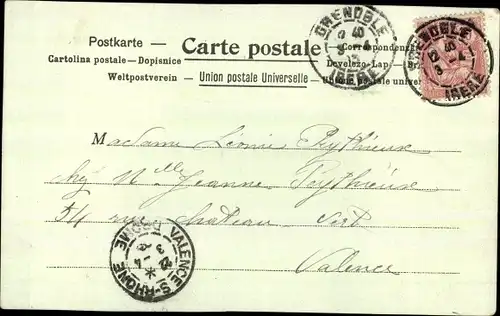 Postkarte — Carte postale — Correspondenz
Cartolina postale — Dopisnice Levelezo-Lap — Br
Weltpostverein — Union postale Universelle — postale univer
GRENOBLE
ISERE
GRENOBLE
ISERE
Madame Léonie Peythieux
chez Mlle Jeanne Peythieux
54 rue chateau vert
Valence
VALENCE-S-RHONE
DROME